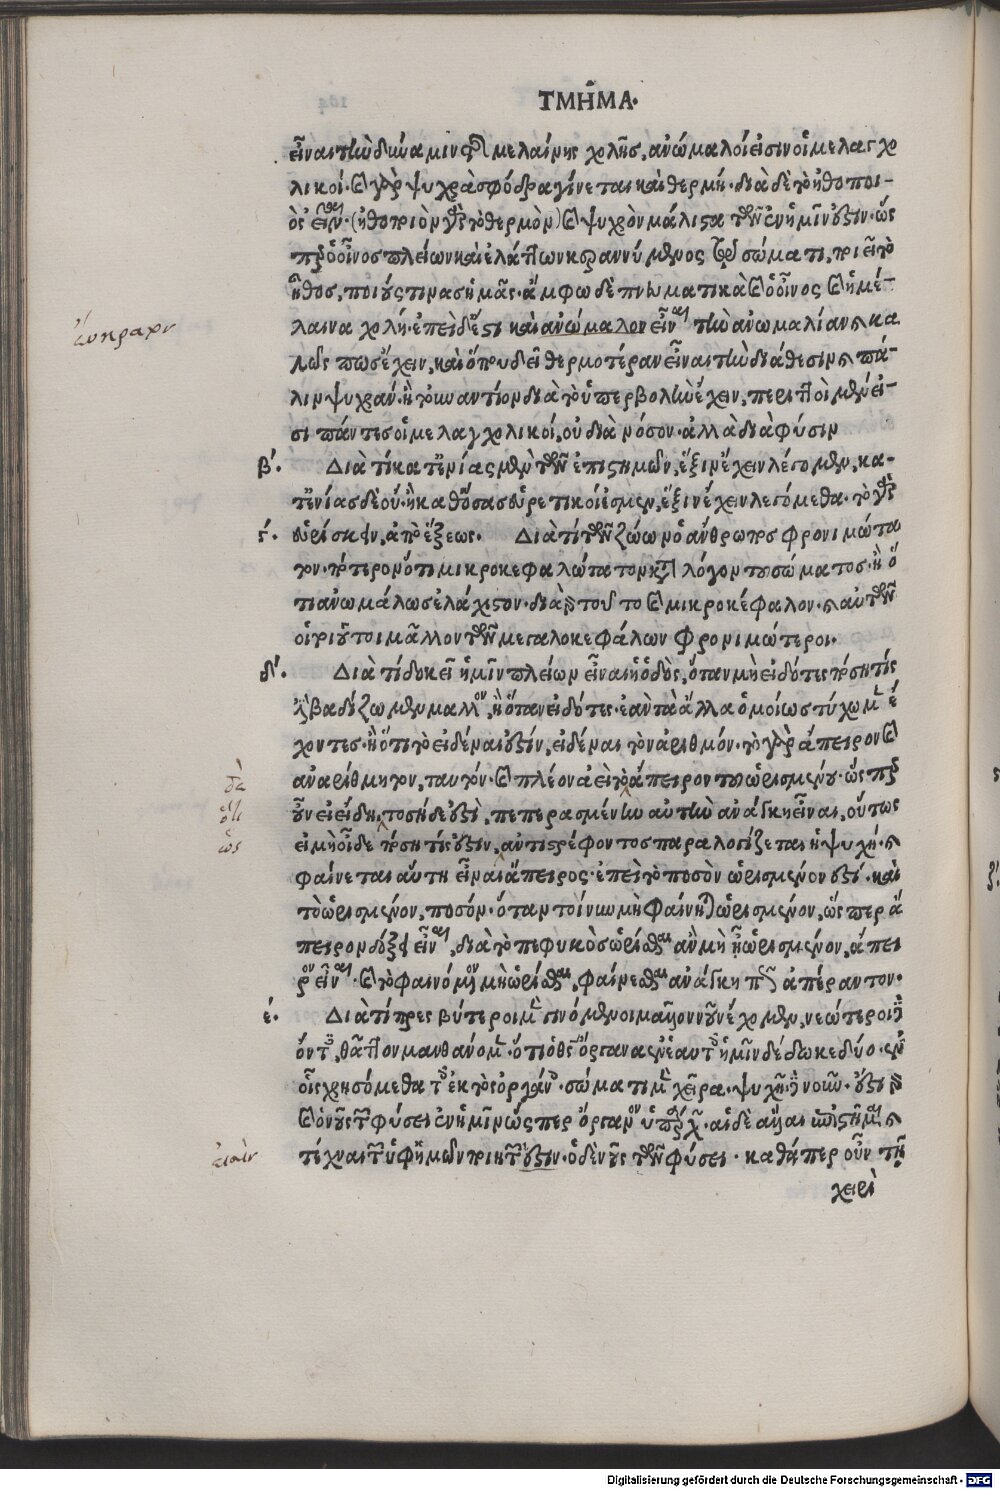 ΤΜΗ͂ΜΑ.
εἶναι τὴν δύναμιν τῆς μελαίνης χολῆς, ἀνώμαλοί εἰσιν οἱ μελαγχο
λικοί· καὶ γὰρ ψυχρὰ σφόδρα γίνεται καὶ θερμή. διὰ δὲ τὸ ἠθοποι-
ὸς εἶναι· (ἠθοποιὸν γὰρ τὸ θερμὸν) καὶ ψυχρὸν μάλιστα τῶν ἐν ἡμῖν ἐστιν. ὡς
περ ὁ οἶνος πλείων καὶ ἐλάττων κεραννύμενος τῷ σώματι, ποιεῖ τὸ
ἦθος, ποιούς τινας ἡμᾶς. ἄμφω δὲ πνευματικὰ καὶ ὁ οἶνος καὶ ἡ μέ-
λαινα χολή. ἐπεὶ δέ ἐστι καὶ ἀνώμαλον εἶναι τὴν ἀνωμαλίαν καὶ κα
λῶς πως ἔχειν, καὶ ὅπου δεῖ θερμοτέραν εἶναι τὴν διάθεσιν καὶ πά-
λιν ψυχράν. ἢ τοὐναντίον διὰ τὸ ὑπερβολὴν ἔχειν, περιττοὶ μέν εἰ-
σι πάντες οἱ μελαγχολικοί, οὐ διὰ νόσον. ἀλλὰ διὰ φύσιν
β΄. Διὰ τί κατ' ἐνίας μὲν τῶν ἐπιστημῶν, ἕξιν ἔχειν λέγομεν, κα-
τ' ἐνίας δὲ οὔ. ἢ καθ' ὅσας εὑρετικοί ἐσμεν, ἕξιν ἔχειν λεγόμεθα. τὸ γὰρ
γ΄. εὑρίσκειν, ἀπὸ ἕξεως. Διὰ τί τῶν ζώων ὁ ἄνθρωπος φρονιμώτα
τον. πότερον ὅτι μικροκεφαλώτατον κατὰ λόγον τοῦ σώματος. ἢ ὅ
τι ἀνωμάλως ἐλάχιστον. διὰ γὰρ τοῦτο καὶ μικροκέφαλον. καὶ αὐτῶν
οἱ τοιοῦτοι μᾶλλον τῶν μεγαλοκεφάλων φρονιμώτεροι.
δ΄. Διὰ τί δοκεῖ ἡμῖν πλείων εἶναι ἡ ὁδὸς, ὅταν μὴ εἰδότες πόση τίς
βαδίζωμεν μᾶλλον, ἢ ὅταν εἰδότες. ἐὰν τὰ ἄλλα ὁμοίως τύχωμεν ἔ
χοντες. ἢ ὅτι τὸ εἰδέναι ἐστὶν, εἰδέναι τὸν ἀριθμόν. τὸ γὰρ ἄπειρον καὶ
ἀναρίθμητον, ταυτόν. καὶ πλέον ἀεὶ τὸ ἄπειρον τοῦ ὡρισμένου. ὥσπερ
οὖν εἰ εἴδη, τοσήδε ἐστὶ, πεπερασμένην αὐτὴν ἀνάγκη εἶναι, οὕτως
εἰ μὴ οἶδε πόση τίς ἐστιν, ἀντιστρέφοντος παραλογίζεται ἡ ψυχή. καὶ
φαίνεται αὕτη εἶναι ἄπειρος. ἐπεὶ τὸ ποσὸν ὡρισμένον ἐστί. καὶ
τὸ ὡρισμένον, ποσόν. ὅταν τοίνυν μὴ φαίνηται ὡρισμένον, ὥσπερ ἄ
πειρον δόξει εἶναι, διὰ τὸ πεφυκὸς ὡρίσθαι ἂν μὴ ᾖ ὡρισμένον, ἄπει
ρον εἶναι. καὶ τὸ φαινόμενον μὴ ὡρίσθαι, φαίνεσθαι ἀνάγκη πως ἀπέραντον.
ε΄. Διὰ τί πρεσβύτεροι μὲν γινόμενοι μᾶλλον νοῦν ἔχομεν, νεώτεροι δὲ
ὄντες, θᾶττον μανθάνομεν. ὅτι ὁ θεὸς ὄργανα ἐν ἑαυτοῖς ἡμῖν δέδωκε δύο. ἐν
οἷς χρησόμεθα τοῖς ἐκτὸς ὀργάνοις. σώματι μὲν χεῖρα. ψυχῇ δὲ νοῦν. ἔστι γὰρ
καὶ ὁ νοῦς τῶν φύσει ἐν ἡμῖν ὥσπερ ὄργανον ὑπάρχων. αἱ δὲ ἄλλαι ἐπιστῆμαι καὶ
τέχναι τῶν ὑφ' ἡμῶν ποιητῶν ἐστιν. ὁ δὲ νοῦς τῶν φύσει. καθάπερ οὖν τῇ
χειρὶ
Digitalisierung gefördert durch die Deutsche Forschungsgemeinschaft - DFG